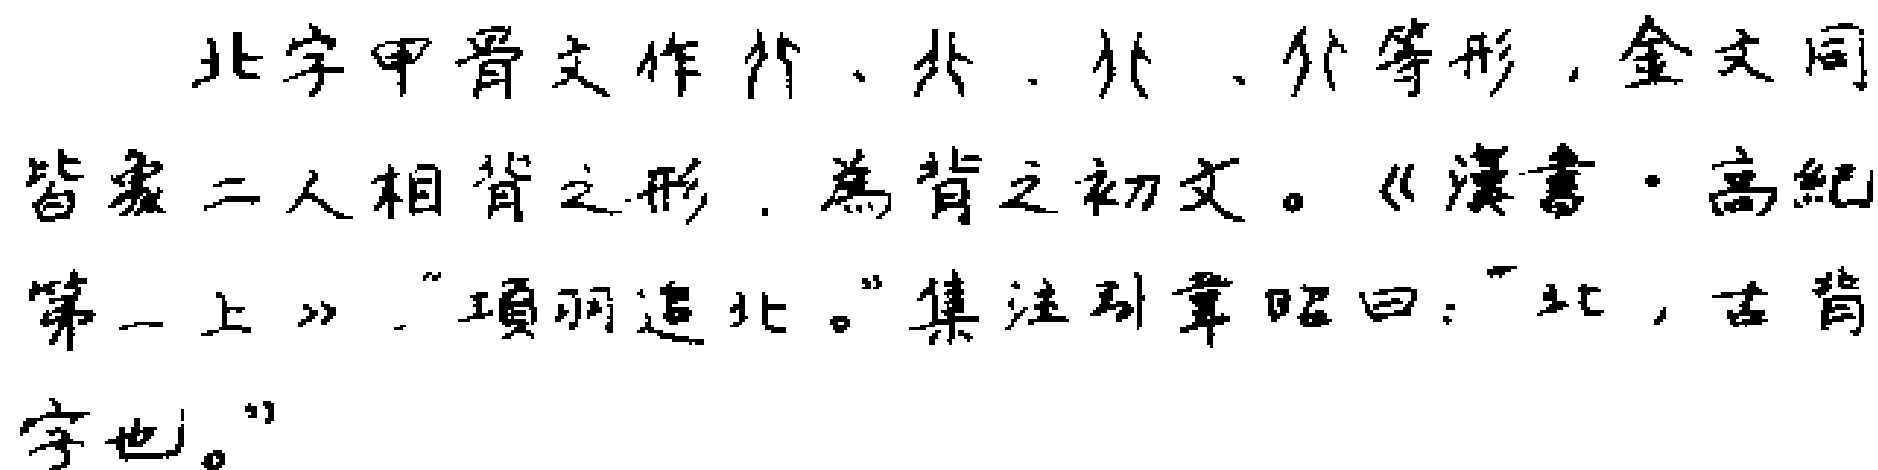 北字甲骨文作、、、等形，金文同
皆象二人相背之形，為背之初文。《漢書·高紀
第一上》：“項羽追北。”集注引韋昭曰：“北，古背
字也。”